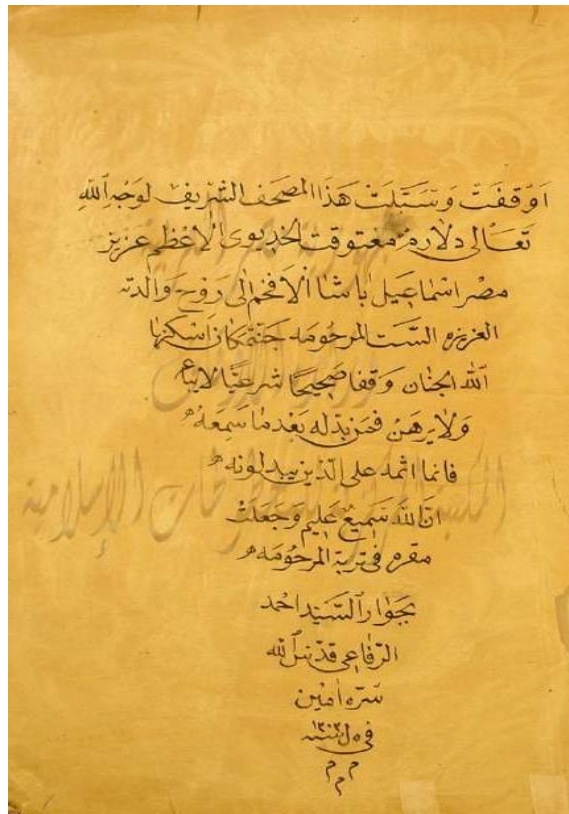 اوقفت وسبلت هذا المصحف الشريف لوجه الله
تعالى دلارم معتوقت الخديوى الاعظم عزيز
مصر اسماعيل باشا الافخم الى روح والدته
العزيزه الست المرحومه جنتمكان اسكنها
الله الجنان وقفا صحيحا شرعيا لا يباع
ولا يرهن فمن بدله بعد ما سمعه
فانما اثمه على الذين يبدلونه
ان الله سميع عليم وجعلت
مقره فى تربة المرحومه
بجوار السيد احمد
الرفاعى قدس الله
سره امين
فى ل سنة ١٣٠٣
م م م
المكتبة المركزية للمخطوطات الإسلامية